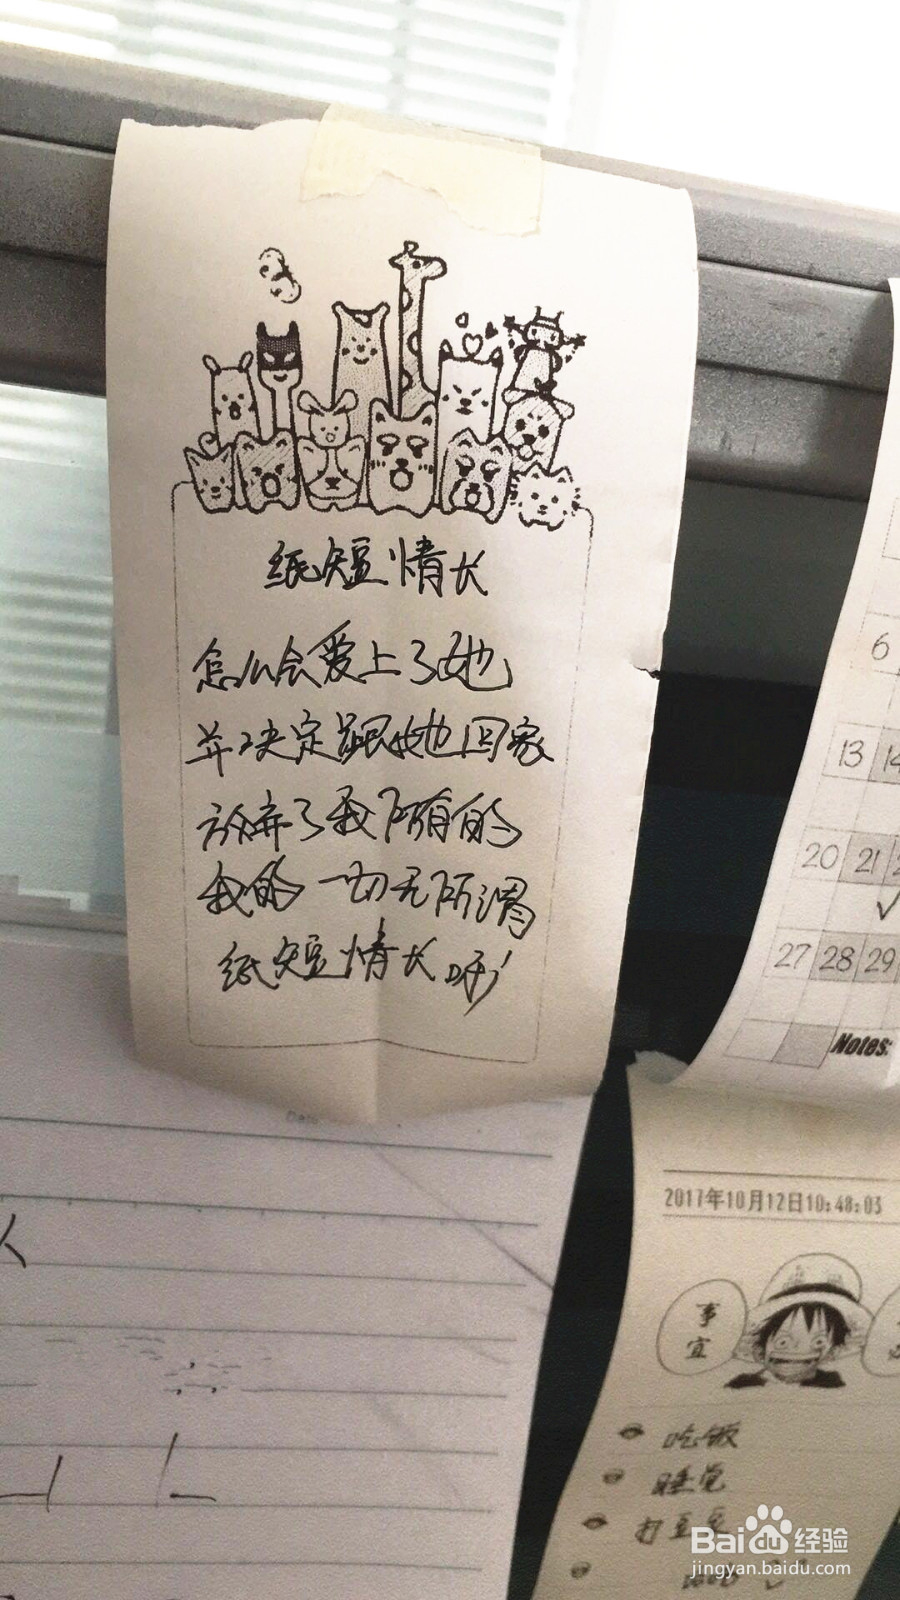 纸短情长
怎么会爱上了她
并决定跟她回家
放弃了我所有的
我的一切无所谓
纸短情长呀
6
13 14
20 21
27 28 29
Notes:
2017年10月12日10:48:03
事宜
吃饭
睡觉
打豆豆
Baidu经验
jingyan.baidu.com
人